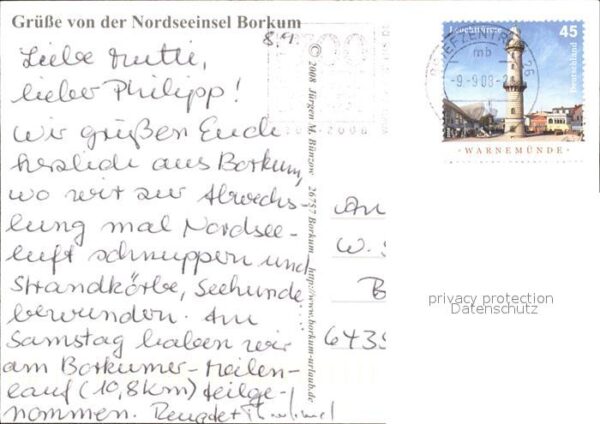 Grüße von der Nordseeinsel Borkum
8.9.
Liebe Mutti,
lieber Philipp!
Wir grüßen Euch
herzlich aus Borkum,
wo wir zur Abwechs-
lung mal Nordsee-
luft schnuppern und
Strandkörbe, Seehunde
bewundern. Am
Samstag haben wir
am Borkumer-Meilen-
lauf (10,8km) teilge-
nommen.
© 2008 Jürgen M. Bünzow 26757 Borkum http://www.borkum-urlaub.de
Leuchttürme
45
Deutschland
WARNEMÜNDE
BRIEFZENTRUM 26
mb
-9.-9.08-2
An
W. S
B
6435
privacy protection
Datenschutz